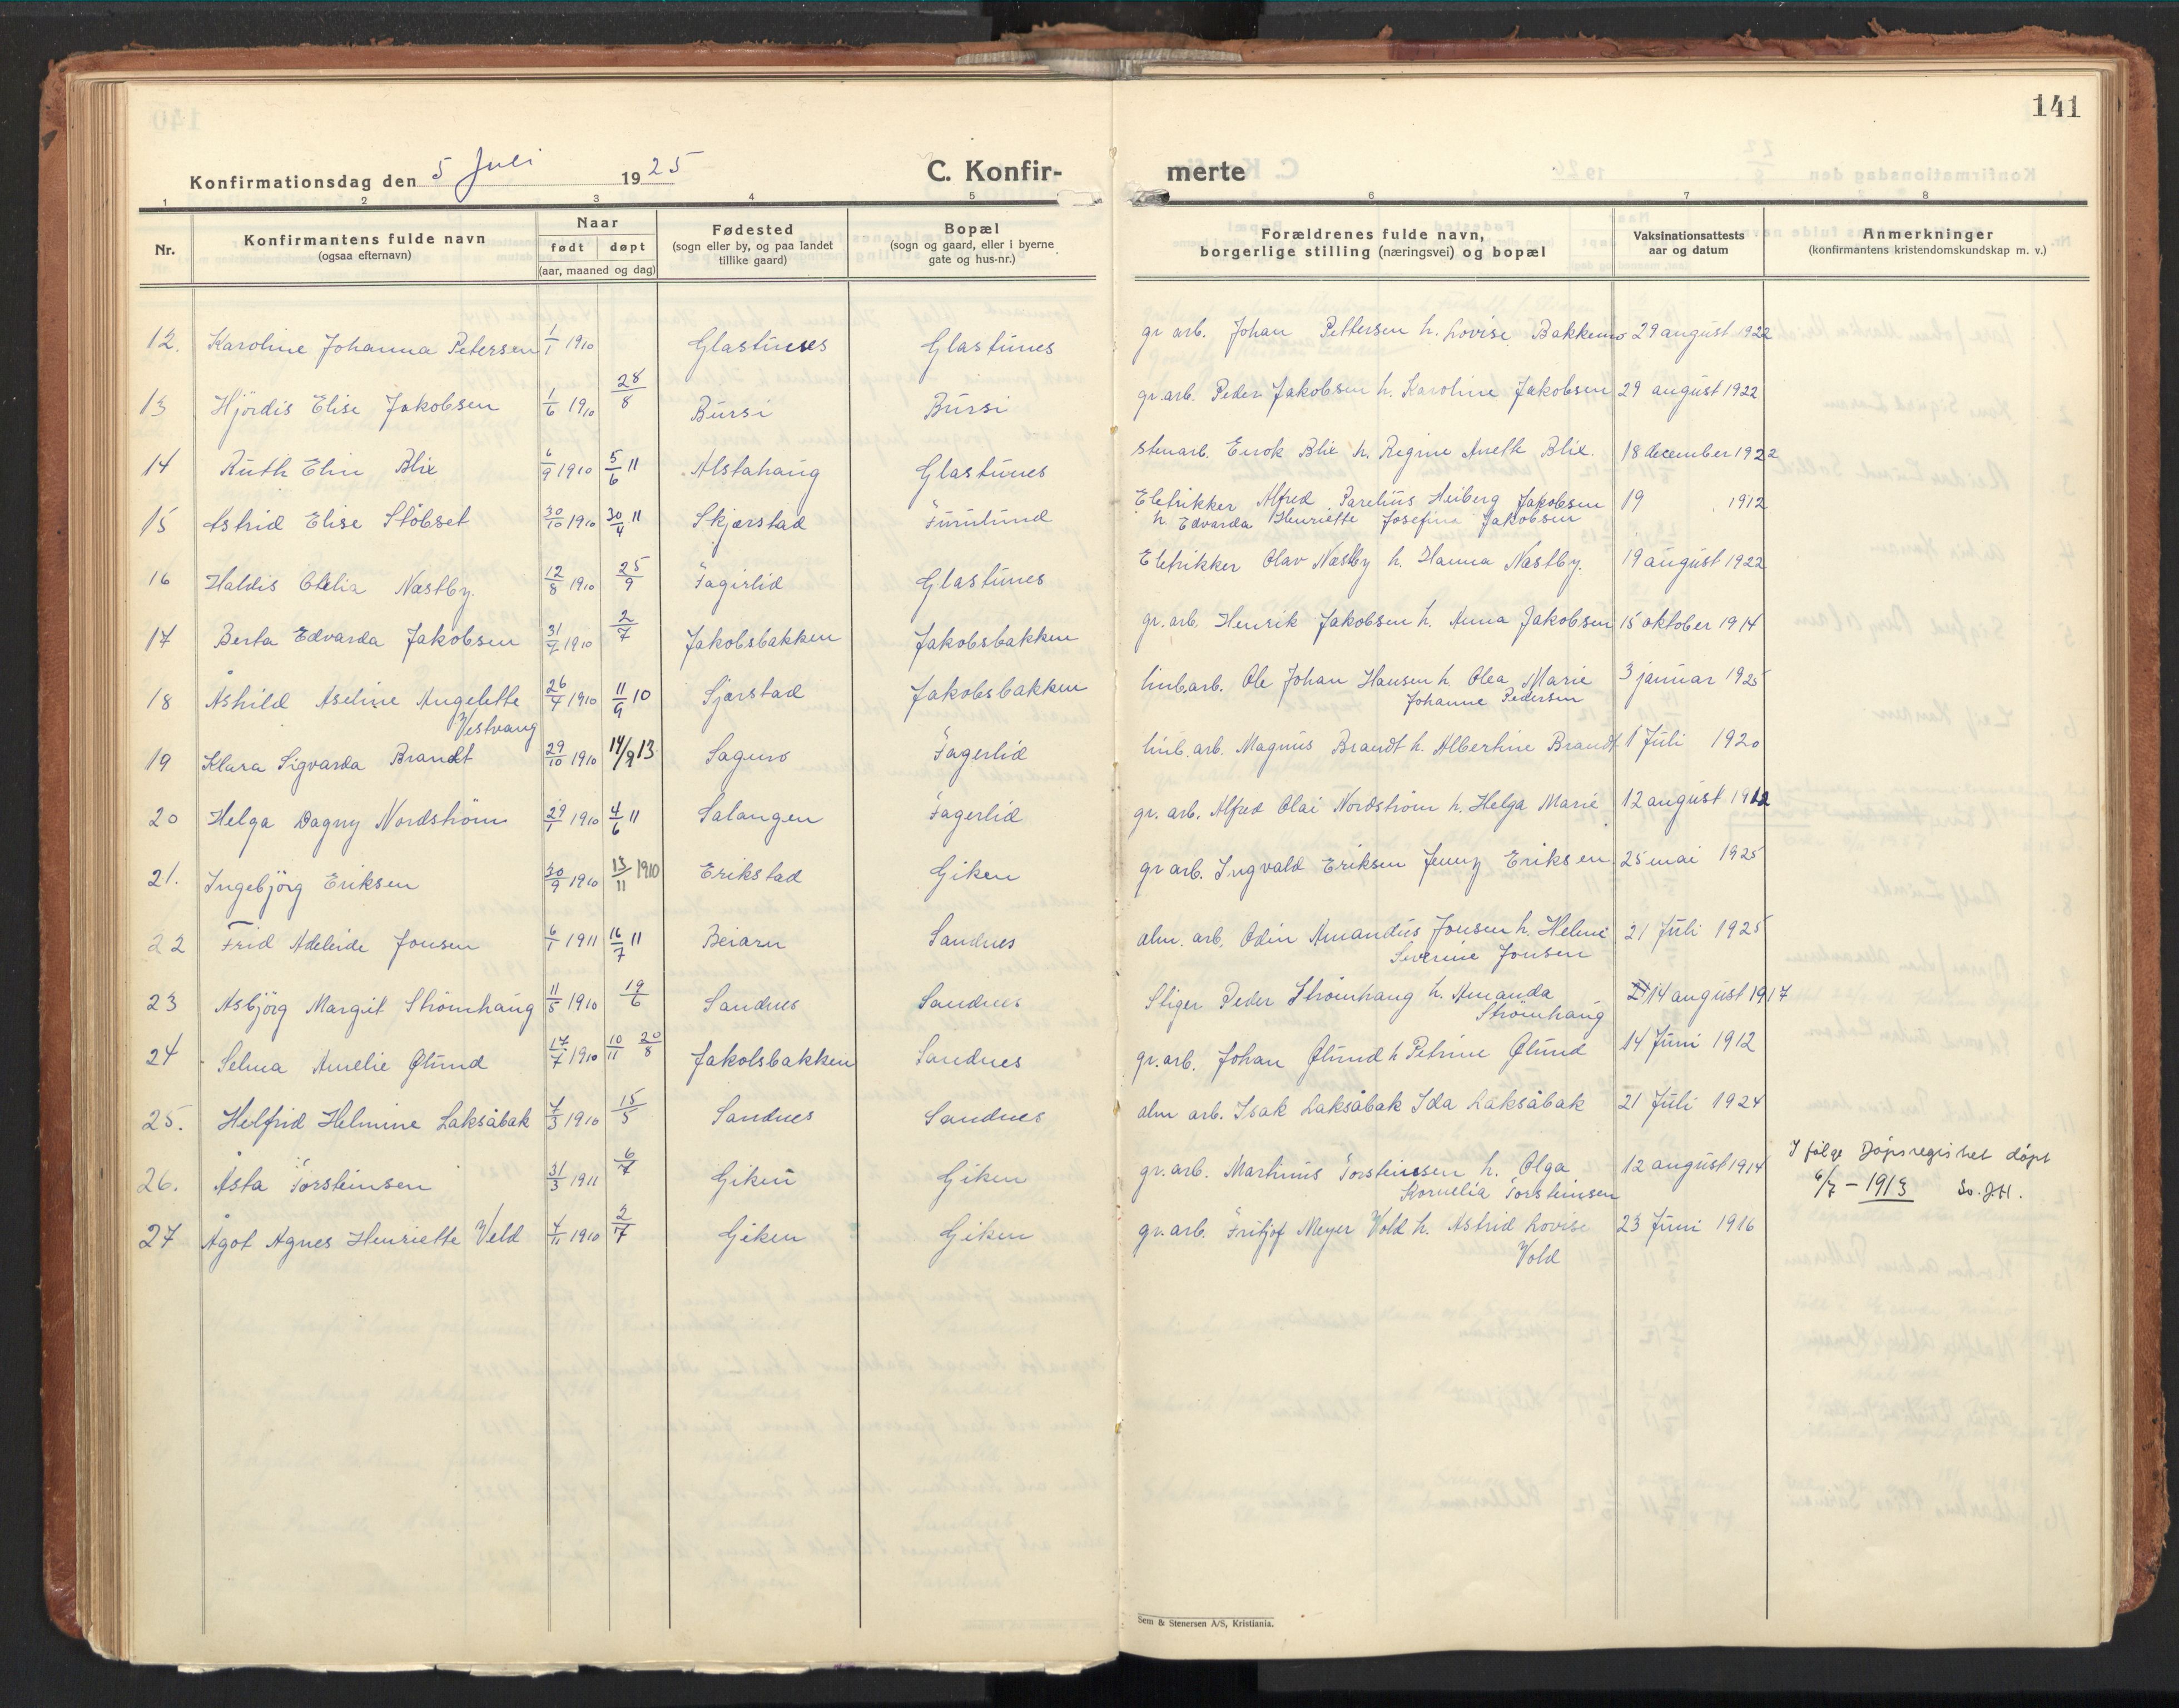 141
Konfirmationsdag den 5 Juli 1925 C. Konfir- merte
1 2 3 4 5 6 7 8
Nr. Konfirmantens fulde navn (ogsaa efternavn) Naar født døpt (aar, maaned og dag) Fødested (sogn eller by, og paa landet tillike gaard) Bopæl (sogn og gaard, eller i byerne gate og hus-nr.) Forældrenes fulde navn, borgerlige stilling (næringsvei) og bopæl Vaksinationsattests aar og datum Anmerkninger (konfirmantens kristendomskundskap m. v.)
12. Karoline Johanna Petersen 1/1 1910 Glastunes Glastunes gr arb. Johan Pettersen h. Lovise Bakkemo 29 august 1922
13 Hjördis Elise Jakobsen 1/6 1910 28/8 Bursi Bursi gr. arb. Peder Jakobsen h. Karoline Jakobsen 29 august 1922
14 Ruth Elin Blix 6/9 1910 5/6 11 Alstahaug Glastunes stenarb. Enok Blix h. Regine Anette Blix. 18 december 1922
15 Astrid Elise Stöbset 30/10 1910 30/4 11 Skjærstad Furulund Eletrikker Alfred Parelius Heiberg Jakobsen 19 1912
h. Edvarda Henriette Josefine Jakobsen
16 Haldis Otelia Næstby. 12/8 1910 25/9 Fagirlid Glastunes Eletrikker Olav Næstby h. Hanna Næstby. 19 august 1922
17 Berta Edvarda Jakobsen 31/7 1910 2/7 Jakobsbakken Jakobsbakken gr. arb. Henrik Jakobsen h. Anna Jakobsen 15 oktober 1914
18 Åshild Aseline Angelette 26/4 1910 11/9 10 Sjærstad Jakobsbakken linb.arb. Ole Johan Hansen h. Olea Marie 3 januar 1925
Vestvang Johanne Pedersen
19 Klara Sigvarda Brandt 29/10 1910 14/9 13 Sagmo Fagerlid linb. arb. Magnus Brandt h. Albertine Brandt 1 Juli 1920
20 Helga Dagny Nordström 29/1 1910 4/6 11 Salangen Fagerlid gr. arb. Alfred Olai Nordström h. Helga Marie 12 august 1912
21. Ingebjörg Eriksen 30/9 1910 13/11 1910 Erikstad Giken gr arb. Ingvald Eriksen Jenny Eriksen 25 mai 1925
22 Frid Adeleide Jonsen 6/1 1911 16/7 11 Beiarn Sandnes alm. arb. Odin Amandus Jonsen h. Helmi 21 Juli 1925
Severine Jonsen
23 Asbjörg Margit Strömhaug 11/5 1910 19/6 Sandnes Sandnes Stiger Peder Strömhaug h. Amanda 14 august 1917
Strömhaug
24 Selma Amelie Ølund 17/7 1910 10/11 20/8 Jakolsbakken Sandnes gr. arb. Johan Ølund h Petrine Ølund 14 Juni 1912
25. Helfrid Helmine Laksåbak 7/3 1910 15/5 Sandnes Sandnes alm arb. Isak Laksåbak Ida Laksåbak 21 Juli 1924
26. Åsta Torsteinsen 31/3 1911 6/7 Giken Giken gr. arb. Martinus Torsteinssen h. Olga 12 august 1914 I følge Döpsregistret döpt
Kornelia Torsteinsen 6/7 - 1913 So. J.H.
27 Ågot Agnes Henriette Veld 4/11 1910 2/7 Giken Giken gr. arb. Fritjof Meyer Vold h. Astrid Lovise 23 Juni 1916
Vold
Sem & Stenersen A/S, Kristiania.